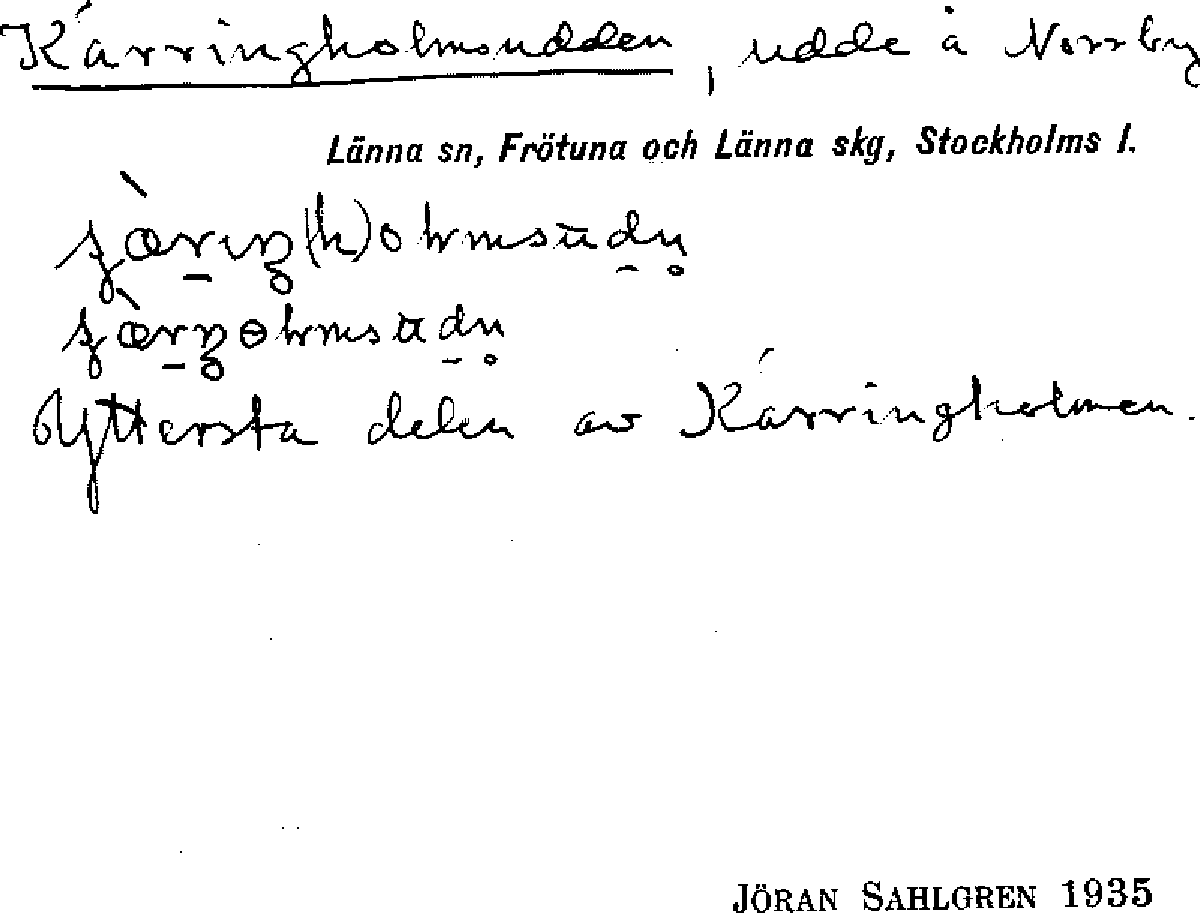 Kärringholmsudden, udde å Norrby
Länna sn, Frötuna och Länna skg, Stockholms l.
Yttersta delen av Kärringholmen.
JÖRAN SAHLGREN 1935